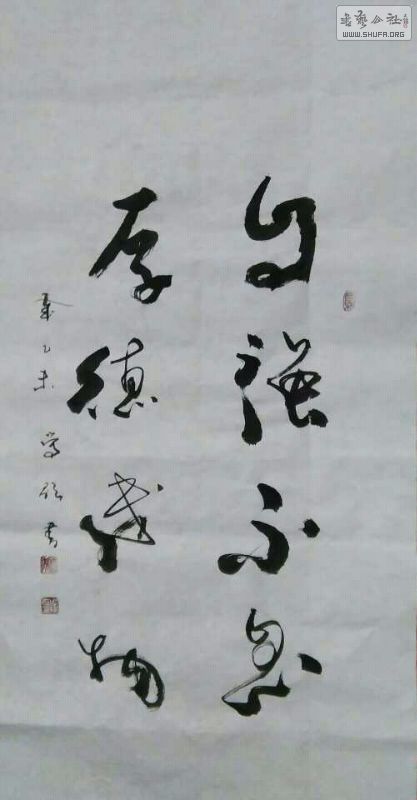 自强不息
厚德载物
乙未
书
书艺公社
WWW.SHUFA.ORG